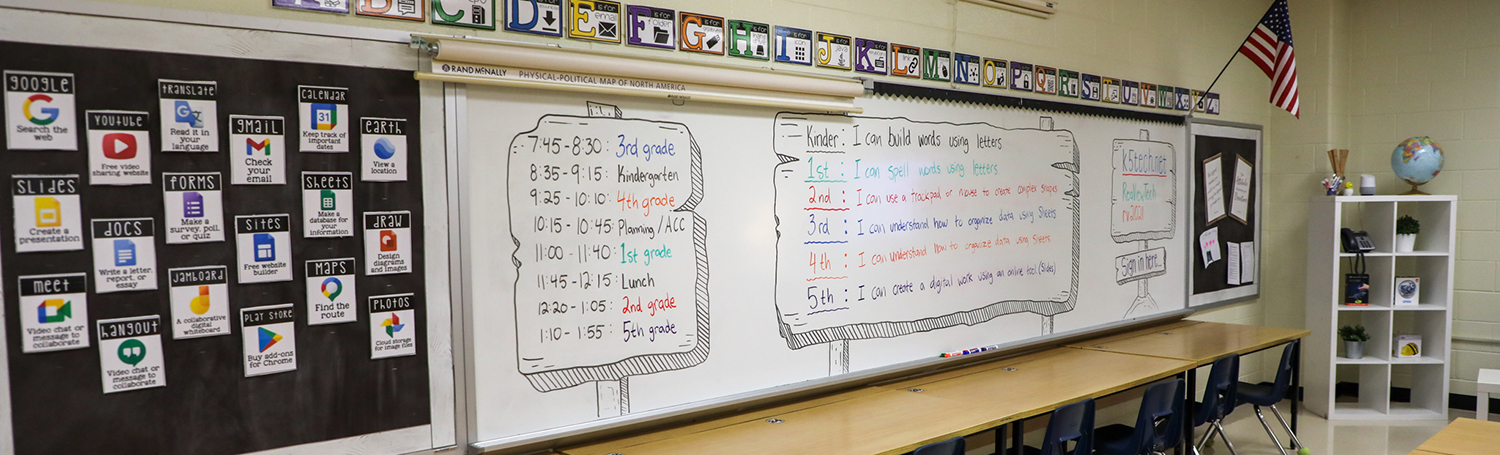 A B is for C is for D is for E is for F is for G is for H is for I is for J is for K is for L M N O P Q R S T U V W X Y Z
email
folder
icon
java
RAND McNALLY PHYSICAL-POLITICAL MAP OF NORTH AMERICA
GOOGLE
Search the
web
YOUTUBE
Free video
sharing website
TRANSLATE
Read it in
your language
GMAIL
Check
your email
CALENDAR
31
Keep track of
important
dates
EARTH
View a
location
SLIDES
Create a
presentation
DOCS
Write a letter,
report, or
essay
FORMS
Make a
survey, poll, or
quiz
SITES
Free website
builder
SHEETS
Make a
database for
your
information
DRAW
Design
diagrams
and images
MEET
Video chat or
message to
collaborate
HANGOUT
Video chat
or message to
collaborate
JAMBOARD
A collaborative
digital
whiteboard
PLAY STORE
Buy add-ons
for Chrome
MAPS
Find the
route
PHOTOS
Cloud storage
for image files
7:45-8:30: 3rd grade
8:35-9:15: Kindergarten
9:25-10:10: 4th grade
10:15-10:45: Planning/ACC
11:00-11:40: 1st grade
11:45-12:15: Lunch
12:20-1:05: 2nd grade
1:10-1:55: 5th grade
Kinder: I can build words using letters
1st: I can spell words using letters
2nd: I can use a trackpad or mouse to create complex shapes
3rd: I can understand how to organize data using Sheets
4th: I can understand how to organize data using Sheets
5th: I can create a digital work using an online tool (Slides)
k5tech.net
Sign in here...